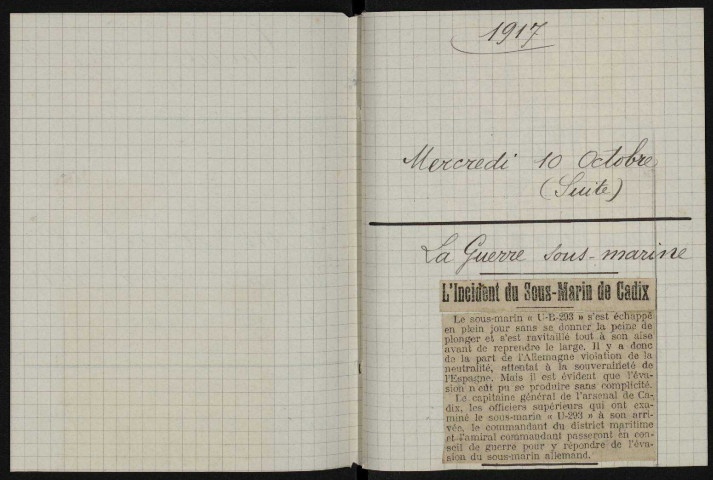 1917
Mercredi 10 Octobre
(Suite)
La Guerre sous-marine
L'Incident du Sous-Marin de Cadix
Le sous-marin « U-B-293 » s'est échappé
en plein jour sans se donner la peine de
plonger et s'est ravitaillé tout à son aise
avant de reprendre le large. Il y a donc
de la part de l'Allemagne violation de la
neutralité, attentat à la souveraineté de
l'Espagne. Mais il est évident que l'éva-
sion n'eût pu se produire sans complicité.
Le capitaine général de l'arsenal de Ca-
dix, les officiers supérieurs qui ont exa-
miné le sous-marin « U-293 » à son arri-
vée, le commandant du district maritime
et l'amiral commandant passeront en con-
seil de guerre pour y répondre de l'éva-
sion du sous-marin allemand.